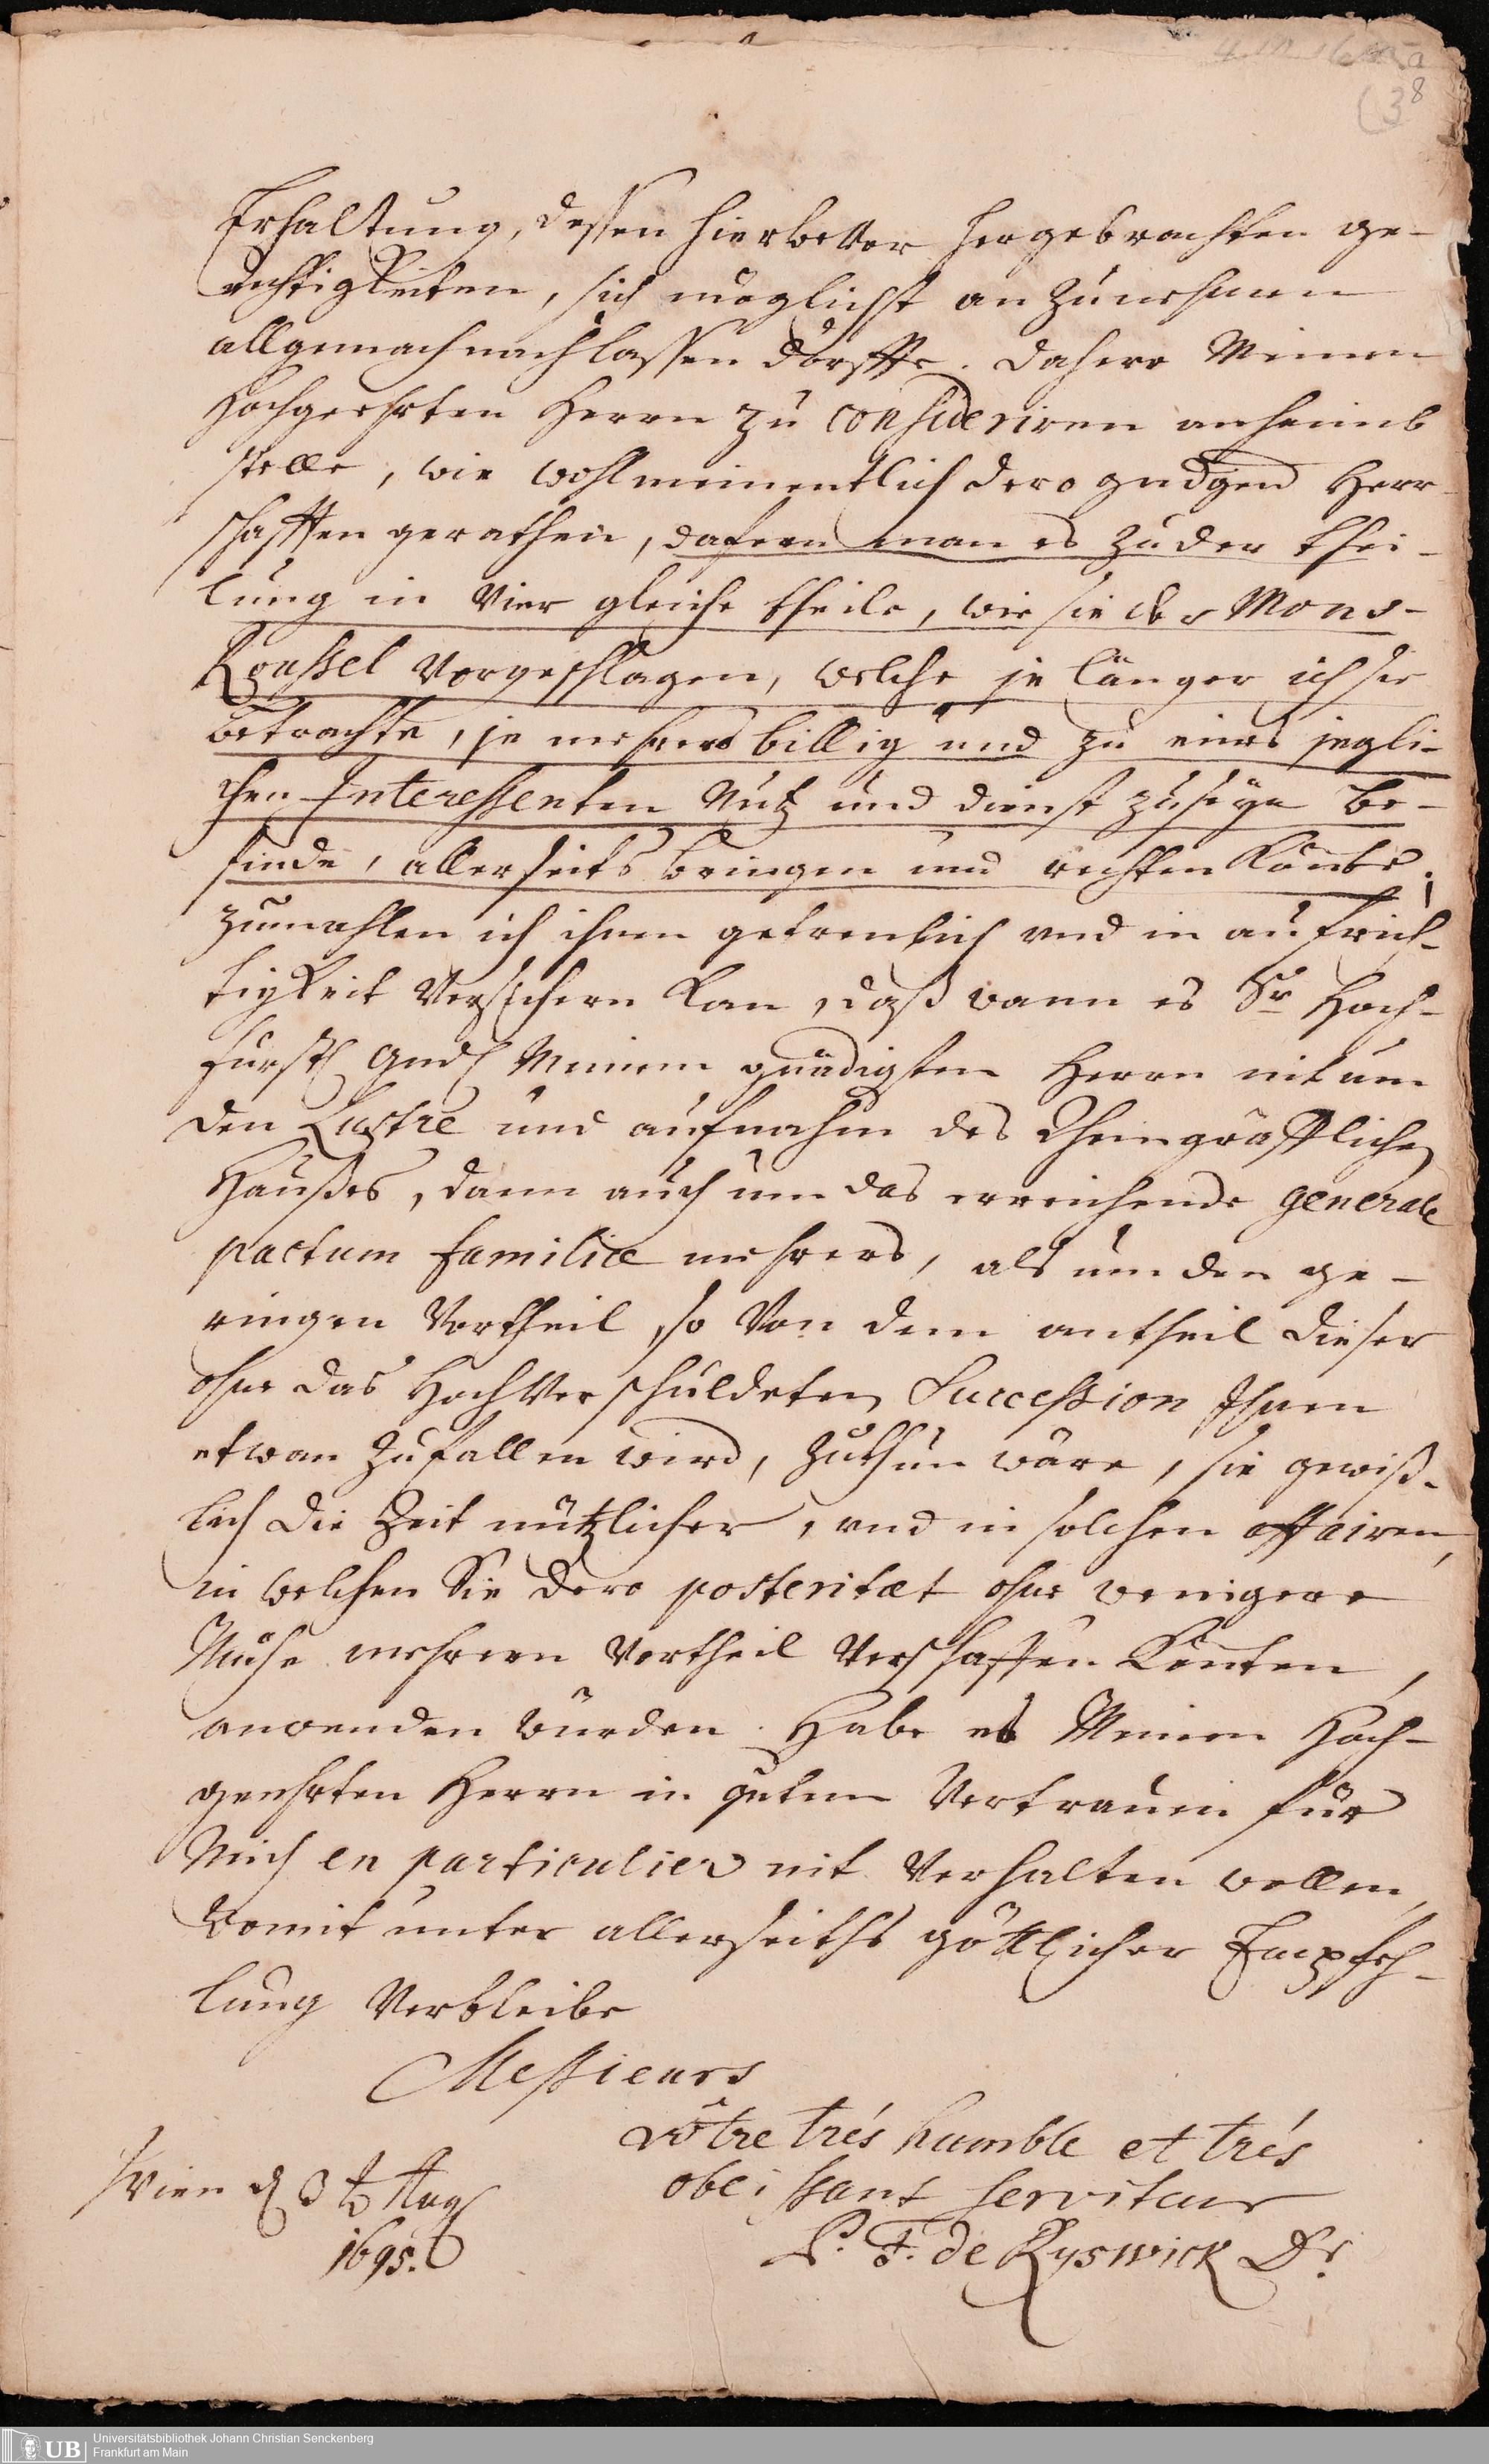 8
(3
Erhaltung, dessen hierbevor hergebrachten ge-
rechtigkeiten, sich möglichst an zu nehmen
allgemach nachlassen dörffte. Dahero Meinem
Hochgeehrten Herrn zu consideriren anheimb
stelle, wie wohlmeinentlich dero gndgen Herr-
schafften gerathen, dafern man es zu der thei-
lung in Vier gleiche theile, wie sie der Mons-
Roussel Vorgeschlagen, welche je länger ich sie
betrachte, je mehrers billig und zu eines jegli-
chen Interessenten Nutz und dienst zu seyn be-
finde, allerseits bringen und richten könte,
zumahlen ich ihnen getreulich und in aufrich-
tigkeit Versichern kan, daß wann es Sr Hoch-
fürstl Gndl Meinem gnädigsten Herrn nit um
den Lustre und aufnahm des Rheingräfflichen
Haußes, dann auch um das erreichende generale
pactum familiæ mehrers, als um den ge-
ringen Vortheil, so Von dem antheil dieser
ohne das HochVerschuldeten Succession Ihnen
etwan zufallen wird, zu thun wäre, sie gewiß-
lich die Zeit nützlicher, und in solchen affairen,
in welchen Sie dero posteritæt ohne wenigere
Mühe mehrern Vortheil Verschaffen könten,
anwenden würden. Habe es Meinem Hoch-
geehrten Herrn in gutem Vertrauen für
Mich en particulier nit Verhalten wollen,
Womit unter allerseiths göttlicher Empfeh-
lung Verbleibe
Messieurs
vôtre trés humble et trés
obeissant serviteur
Wien d 3 t Aug
1695.
P. F. de Ryswick Dr.
UB
Universitätsbibliothek Johann Christian Senckenberg
Frankfurt am Main